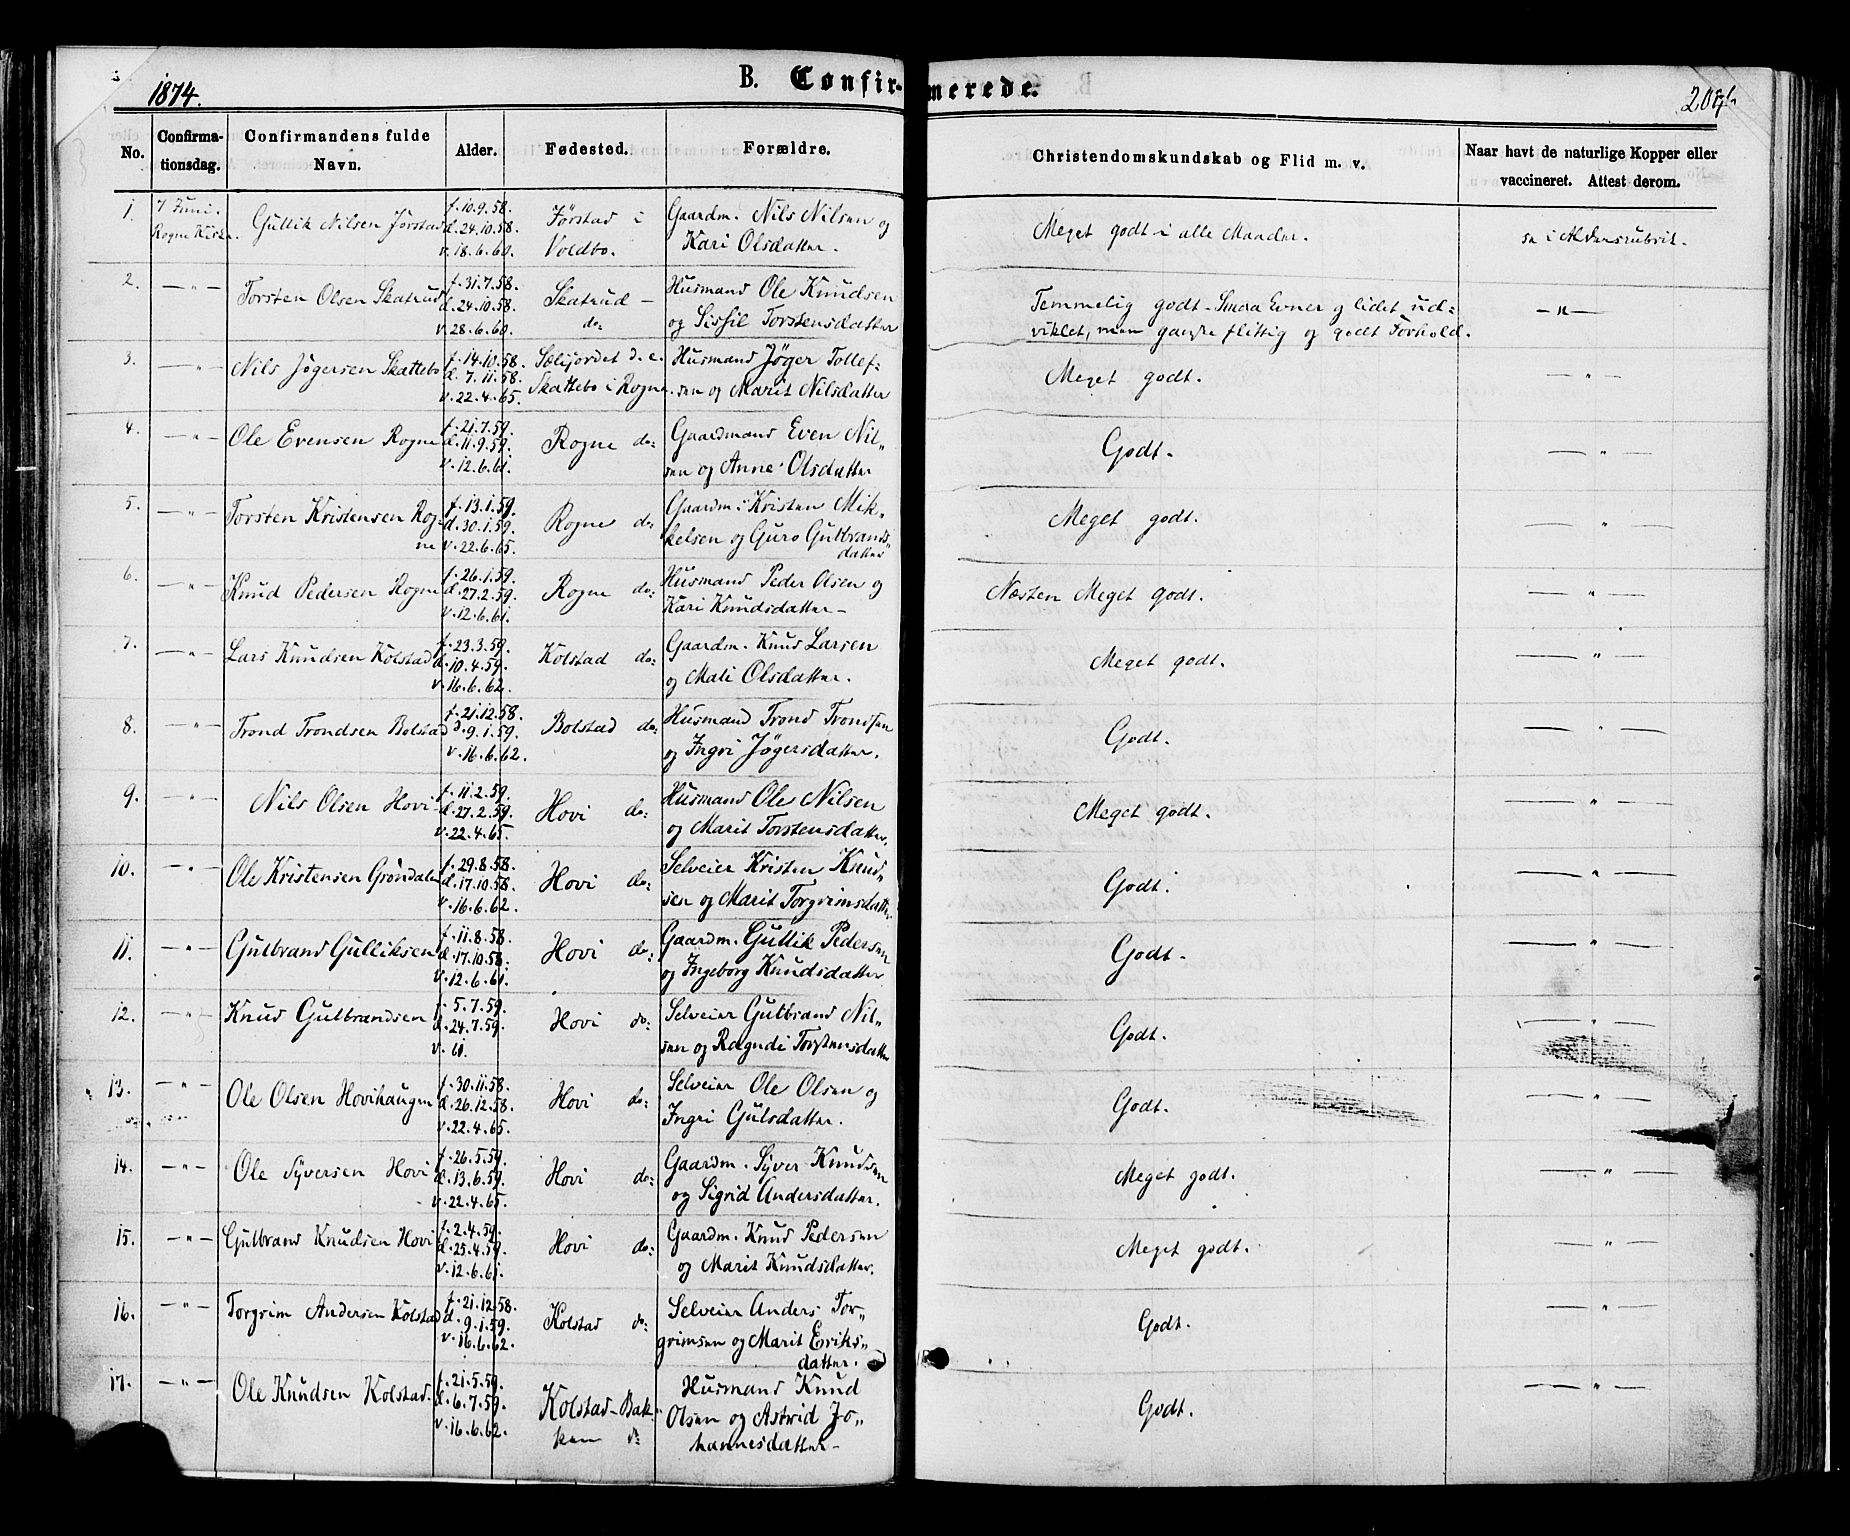 1874.
B. Confirmerede.
No.
Confirma-
tionsdag.
Confirmandens fulde
Navn.
Alder.
Fødested.
Forældre.
Christendomskundskab og Flid m. v.
Naar havt de naturlige Kopper eller
vaccineret. Attest derom.
1. 7 Juni. Gullik Nilsen Jørstad f. 10.9.58. Jørstad i Gaardm. Nils Nilsen og Meget godt i alle Maader. se i Aldersrubrik.
Rogne Kirke. d. 24.10.58. Voldbo. Kari Olsdatter.
v. 18.6.60.
2. — " — Torsten Olsen Skatrud f. 31.7.58. Skatrud — Husmand Ole Knudsen Temmelig godt - Smaa Evner og lidet ud- — " —
d. 24.10.58. do: og Sissil Torstensdatter viklet, men ganske flittig og godt Forhold.
v. 28.6.60.
3. — " — Nils Jøgersen Skattebo f. 14.10.58. Sælifordet d. e. Husmand Jøger Tollef- Meget godt. — " —
d. 7.11.58. Skattebo i Rogne. sen og Marit Nilsdatter
v. 22.4.65.
4. — " — Ole Evensen Rogne f. 21.7.59. Rogne do: Gaardmand Even Nil- Godt. — " —
d. 11.9.59. sen og Anne Olsdatter
v. 12.6.61.
5. — " — Torsten Kristensen Rog- f. 13.1.59. Rogne do Gaardm. Kristen Mik- Meget godt. — " —
ne d. 30.1.59. kelsen og Guro Gulbrands-
v. 22.6.65. datter
6. — " — Knud Pedersen Rogne f. 26.1.59. Rogne do: Husmand Peder Olsen og Næsten Meget godt. — " —
d. 27.2.59. Kari Knudsdatter —
v. 12.6.61.
7. — " — Lars Knudsen Kolstad f. 23.3.59. Kolstad do: Gaardm. Knud Larsen Meget godt. — " —
d. 10.4.59. og Mali Olsdatter.
v. 16.6.62.
8. — " — Trond Trondsen Bolstad f. 21.12.58. Bolstad do: Husmand Trond Trondsen Godt. — " —
d. 9.1.59. og Ingri Jøgersdatter.
v. 16.6.62.
9. — " — Nils Olsen Hovi f. 11.2.59. Hovi do: Husmand Ole Nilsen Meget godt. — " —
d. 27.2.59. og Marit Torstensdatter.
v. 22.4.65.
10. — " — Ole Kristensen Grøndalen f. 29.8.58. Hovi do: Selveier Kristen Knud- Godt. — " —
d. 17.10.58. sen og Marit Torgrimsdatter
v. 16.6.62.
11. — " — Gulbrand Gulliksen f. 11.8.58. Hovi do: Gaardm. Gullik Pedersen Godt. — " —
d. 17.10.58. og Ingeborg Knudsdatter
v. 12.6.61.
12. — " — Knud Gulbrandsen f. 5.7.59. Hovi do: Selveier Gulbrand Nil- Godt. — " —
d. 24.7.59. sen og Ragndi Torstensdatter
v. 61.
13. — " — Ole Olsen Hovihaugen f. 30.11.58. Hovi do: Selveier Ole Olsen og Godt. — " —
d. 26.12.58. Ingri Gulsdatter.
v. 22.4.65.
14. — " — Ole Syversen Hovi f. 26.5.59. Hovi do: Gaardm. Syver Knudsen Meget godt. — " —
d. 13.6.59. og Sigrid Andersdatter.
v. 22.4.65.
15. — " — Gulbrand Knudsen Hovi f. 2.4.59. Hovi do: Gaardm. Knud Pedersen Meget godt. — " —
d. 25.4.59. og Marit Knudsdatter.
v. 12.6.61.
16. — " — Torgrim Andersen Kolstad f. 21.12.58. Kolstad do: Selveier Anders Tor- Godt. — " —
d. 9.1.59. grimsen og Marit Eriks-
v. 16.6.62. datter.
17. — " — Ole Knudsen Kolstad. f. 21.5.59. Kolstad-Bak- Husmand Knud Godt. — " —
d. 6.7.59. ken do: Olsen og Astrid Jo-
v. 16.6.62. hannesdatter —